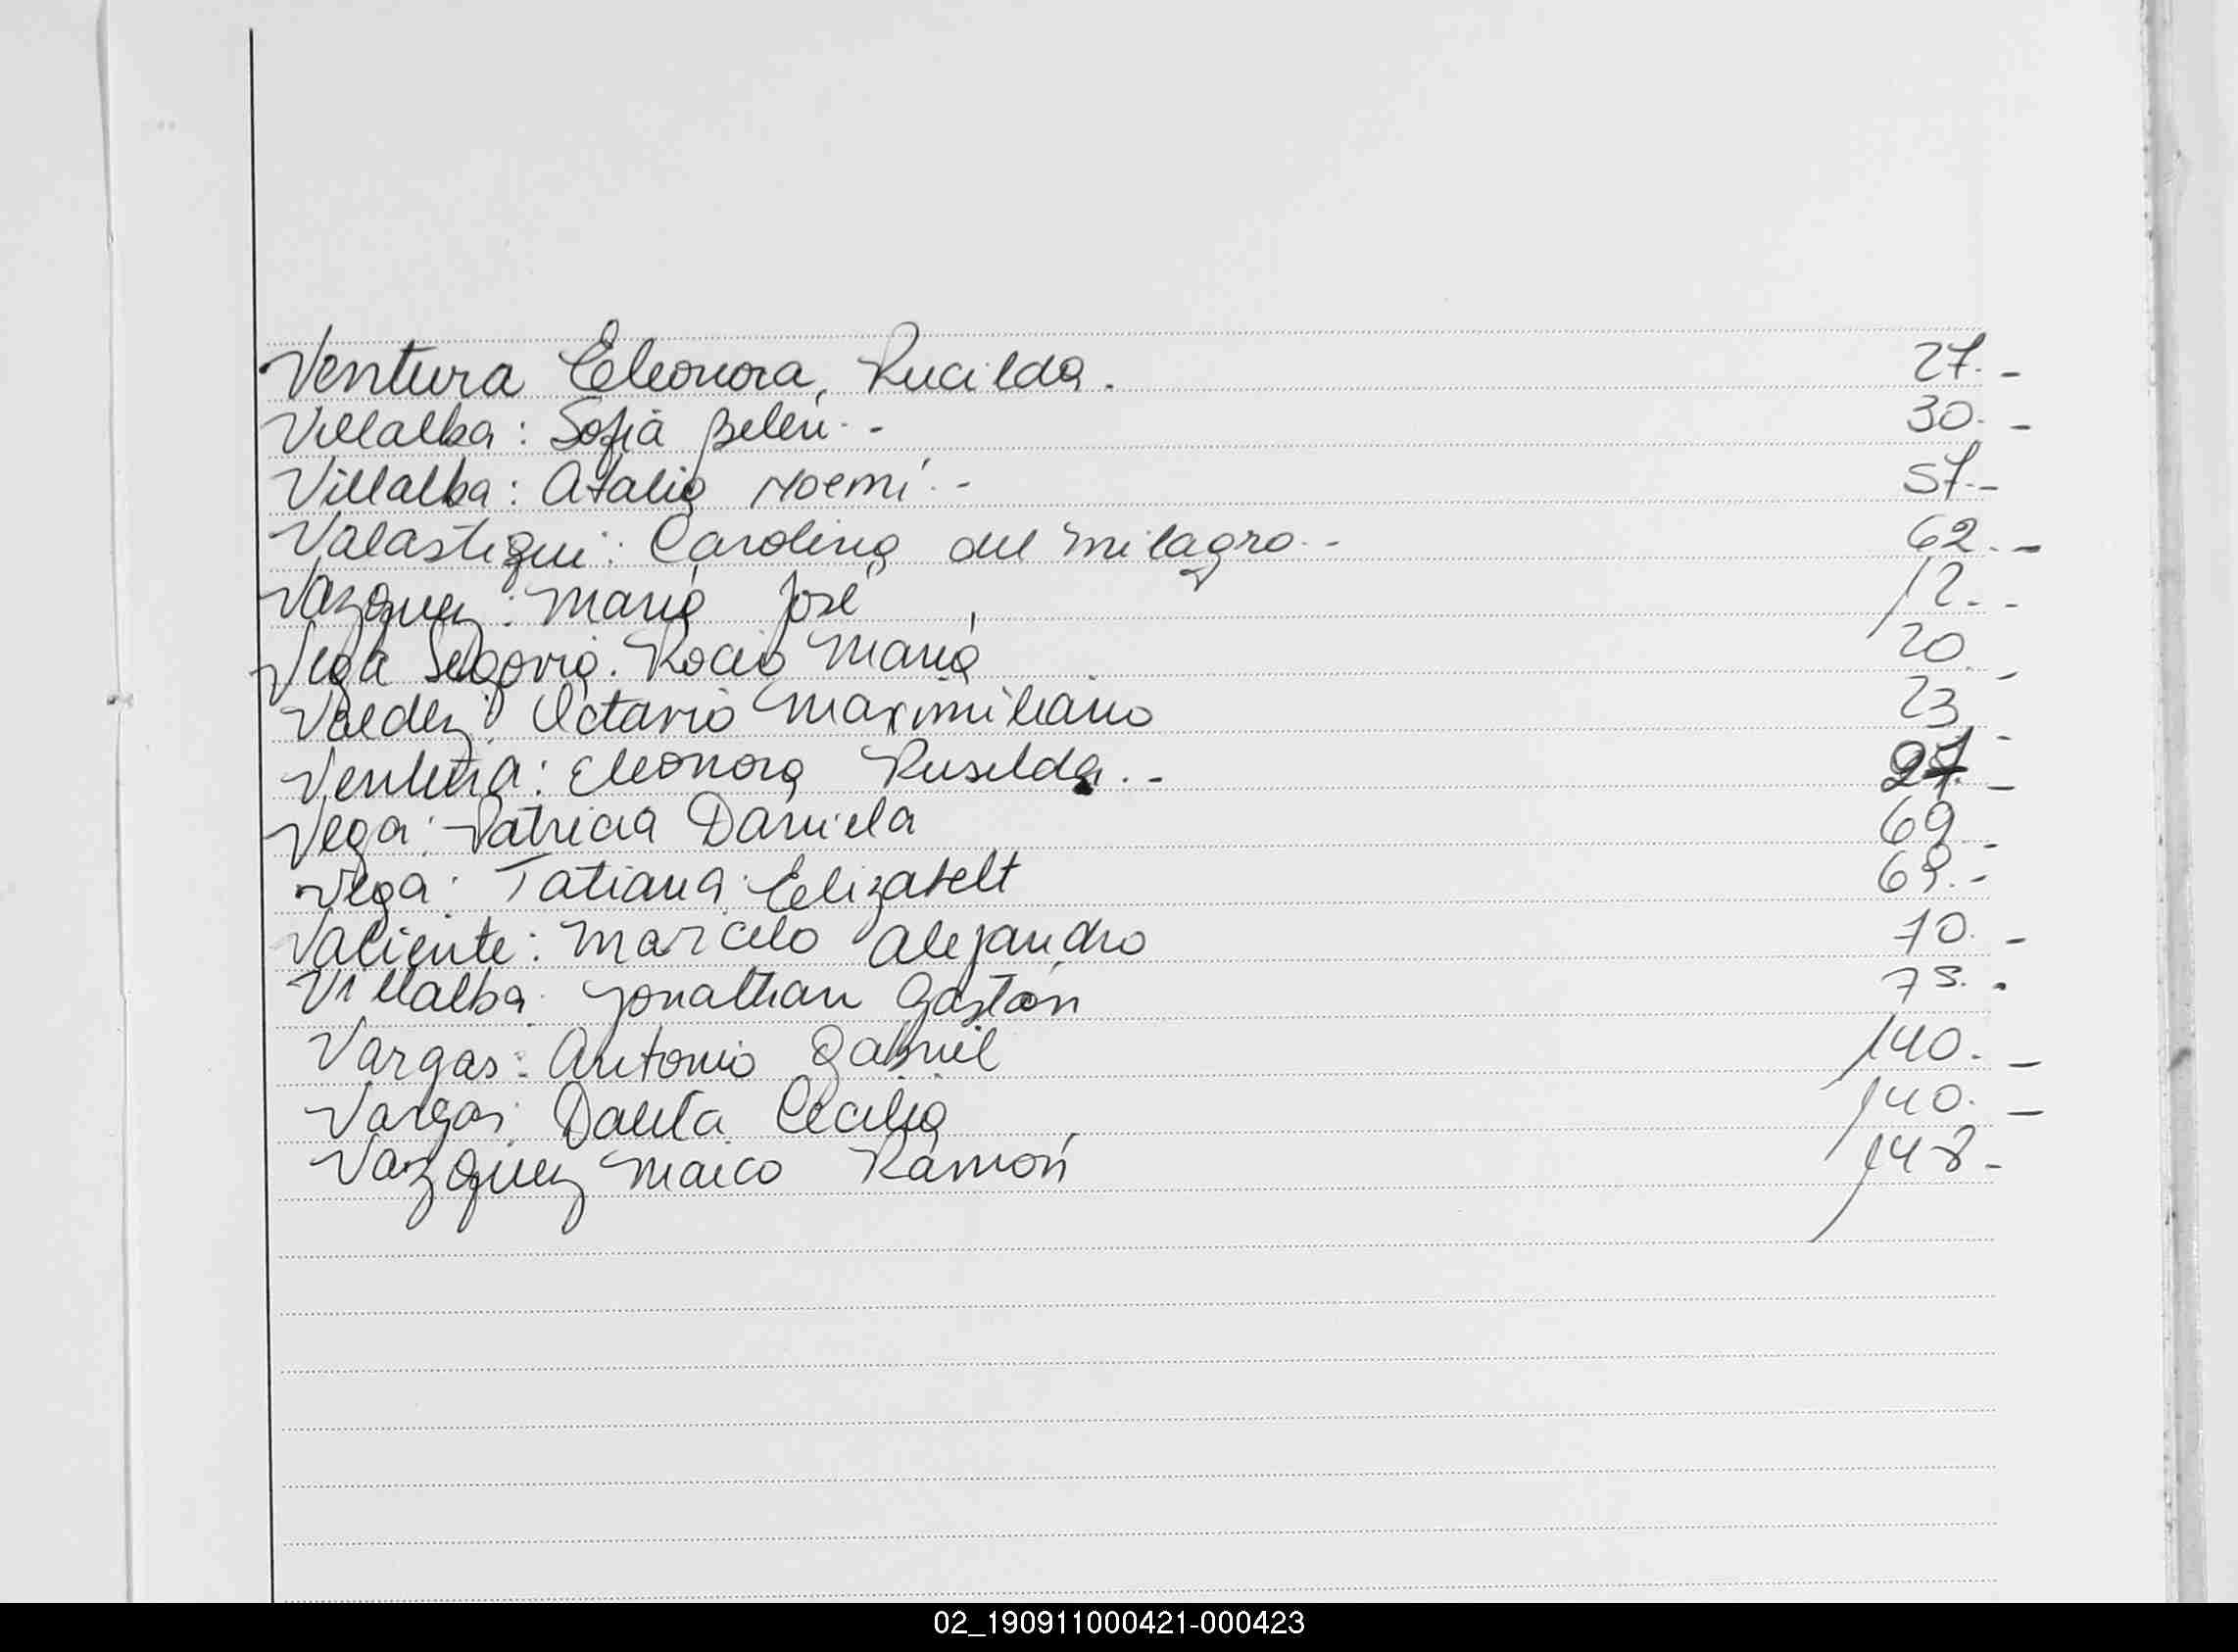 Ventura Eleonora, Rucilda. 27.-
Villalba: Sofiá Belén.- 30.-
Villalba: Atalia Noemí.- 57.-
Valastiqui: Carolina del Milagro.- 62.-
Vazquez: María José 12.-
Vega Segovia. Rocio María 20.-
Valdez: Octavio Maximiliano 23-
Ventura: Eleonora Ruselda.- 27.-
Vega: Patricia Daniela 69-
Vega: Tatiana Elizabelt 69.-
Valiente: Marcelo Alejandro 70.-
Villalba: Jonathan Gastón 73.-
Vargas: Antonio Gabriel 140.-
Vargas: Cecilia 140.-
Vazquez Maico Ramón 148-
02_190911000421-000423